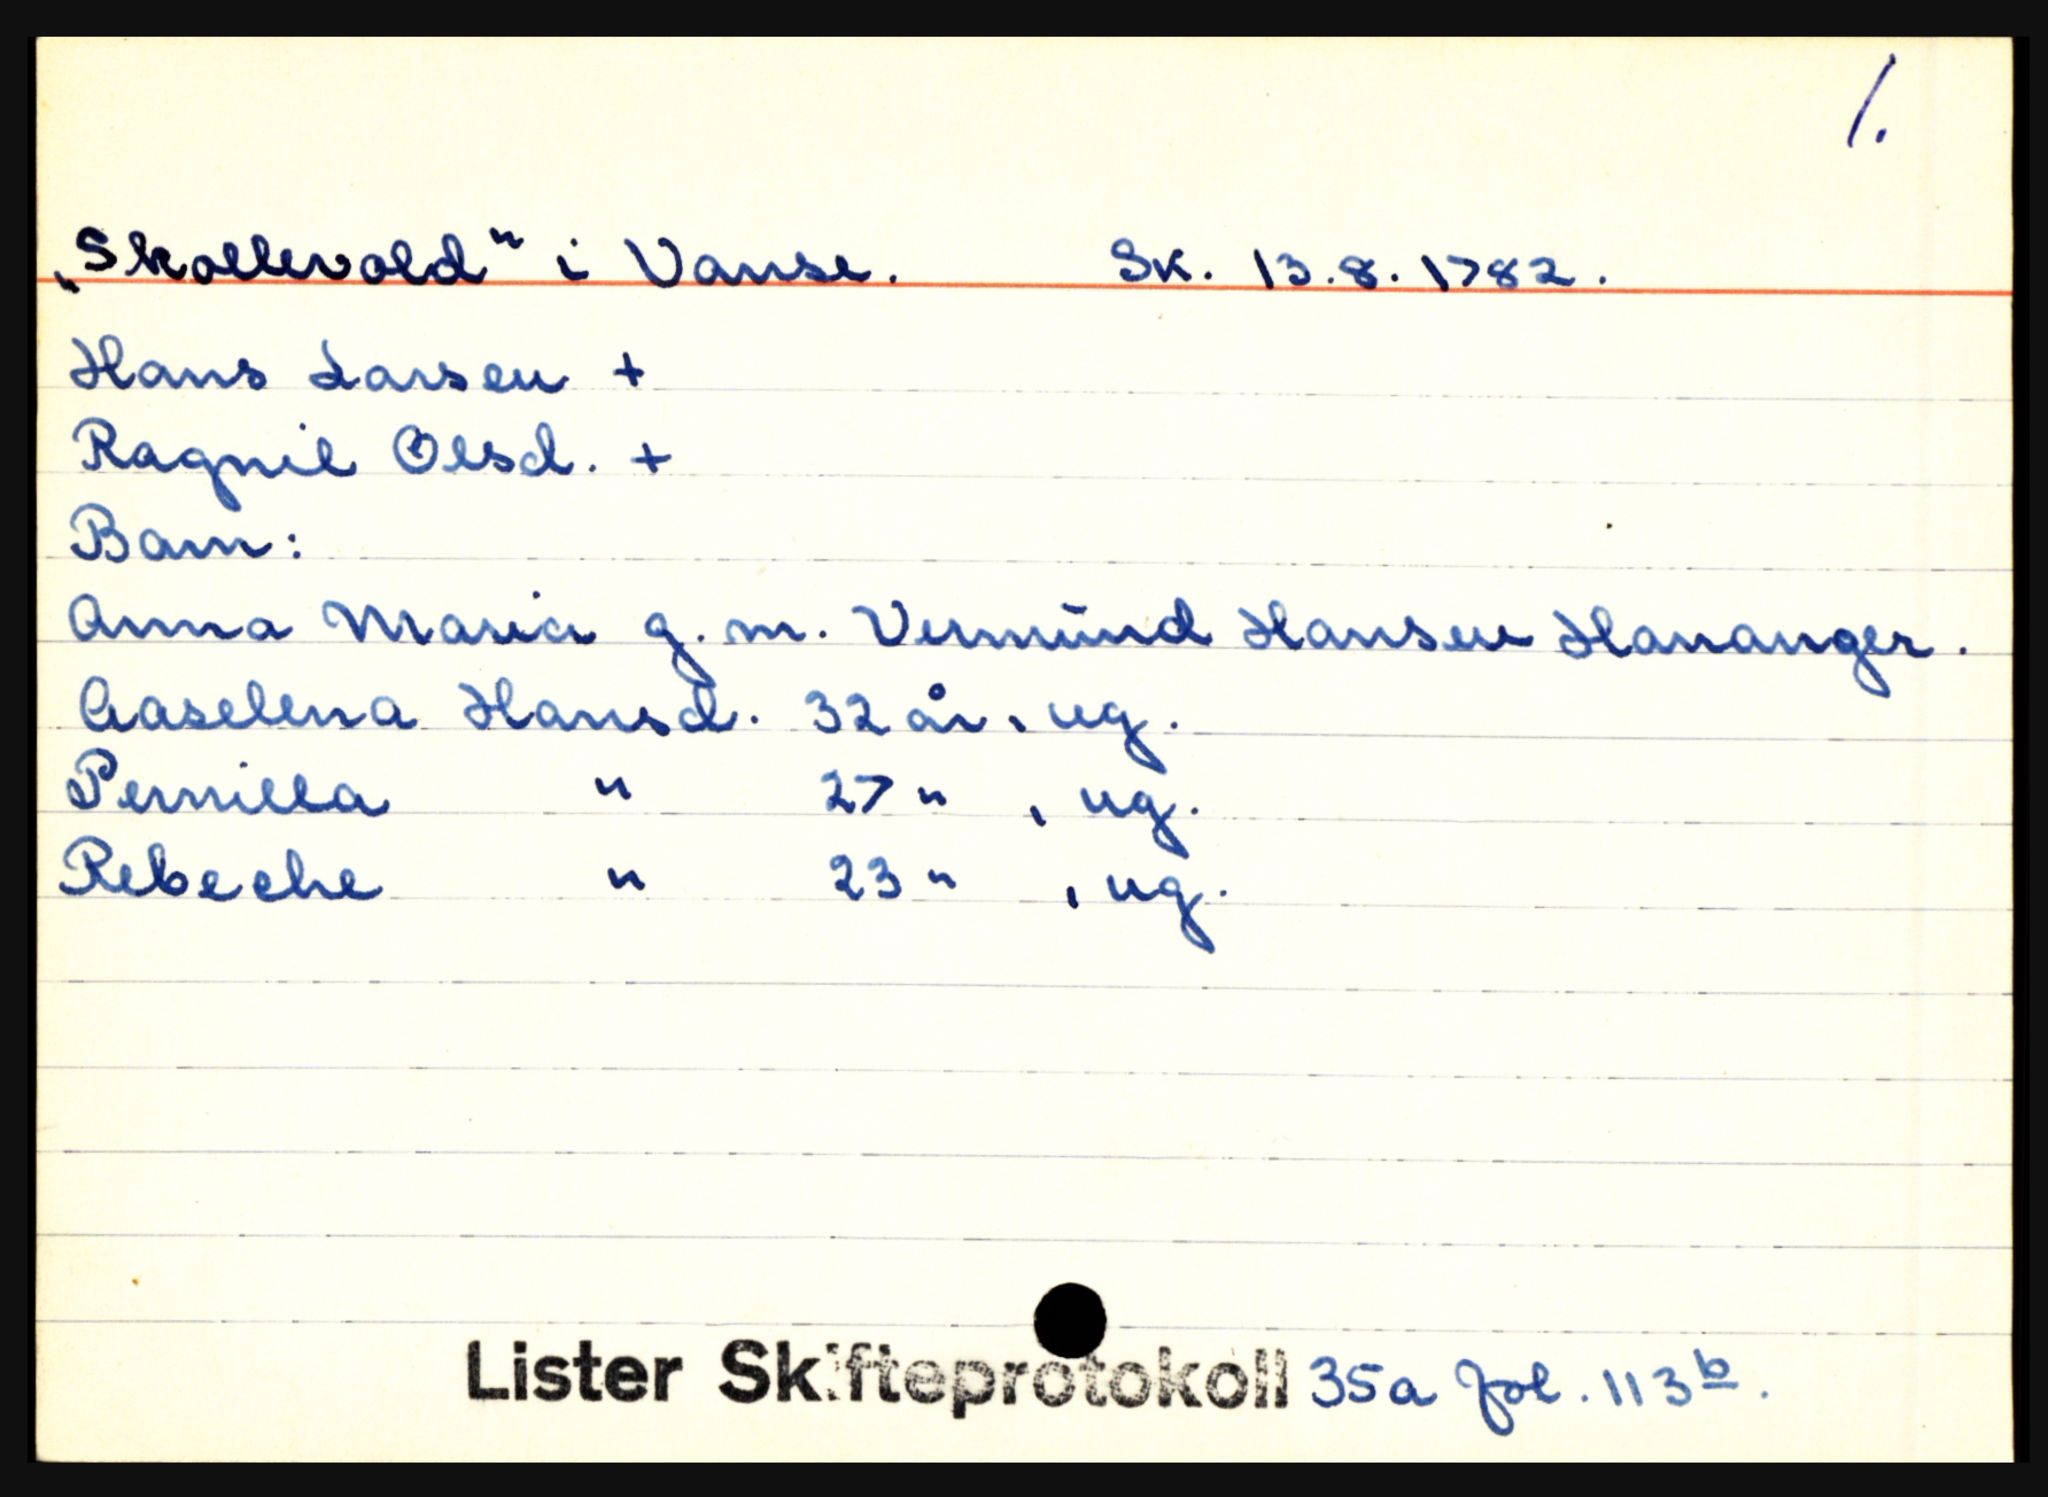 1.
„Skollevold" i Vanse. Sk. 13.8.1782.
Hans Larsen +
Ragnil Olsd. +
Barn:
Anna Maria g.m. Vermŭnd Hansen Hananger.
Aaselena Hansd. 32 år, ug.
Pernilla " 27 " , ug.
Rebeche " 23 " , ug.
Lister Skifteprotokoll 35a fol. 113<sup>b</sup>.